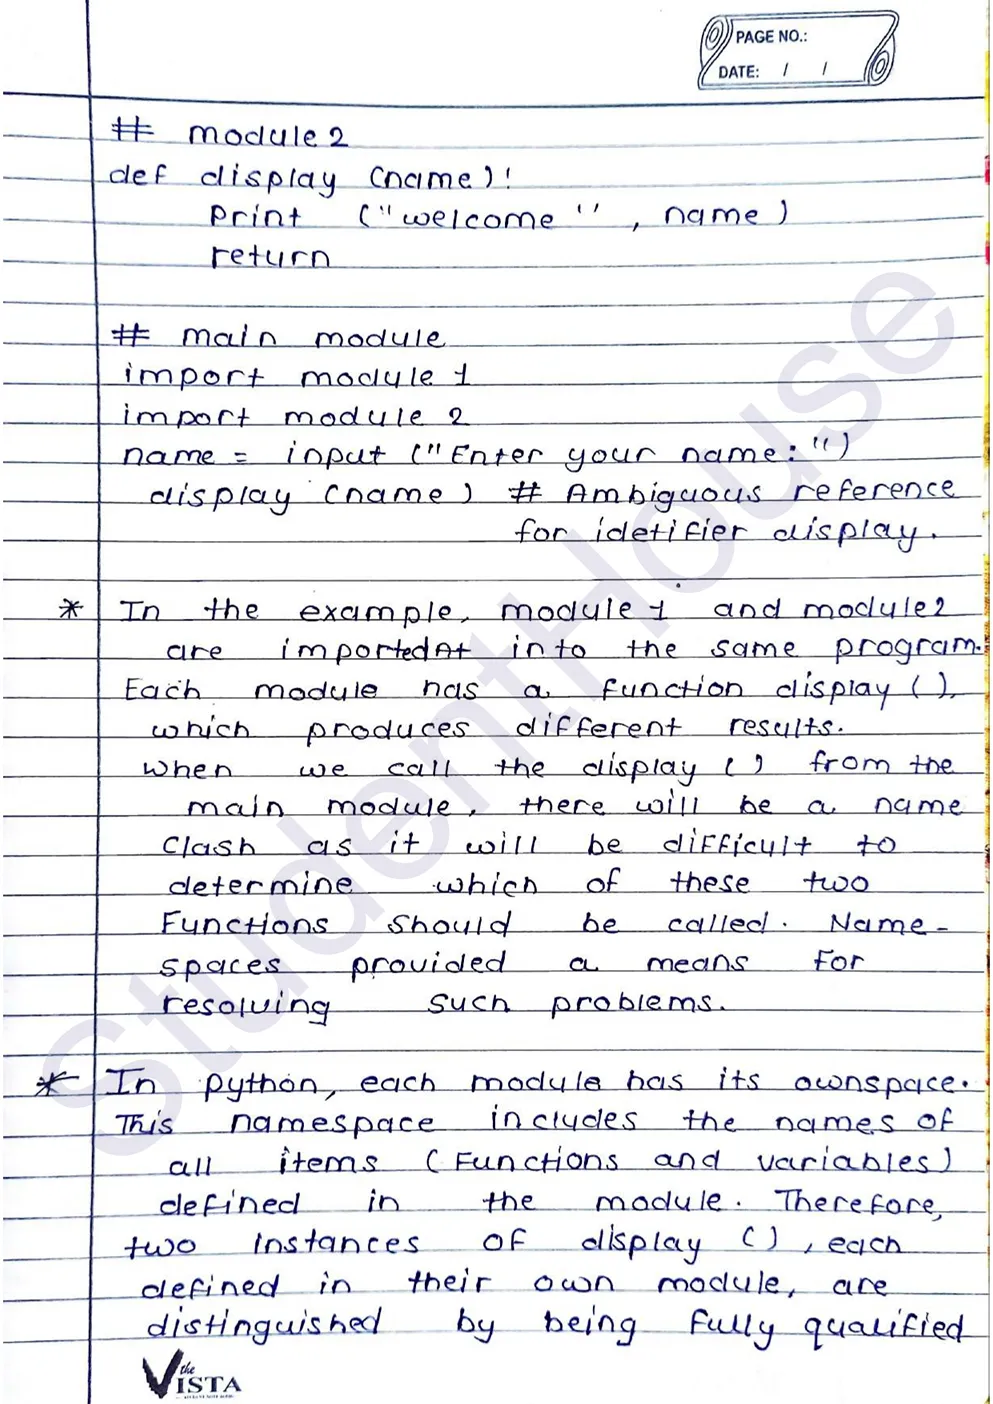 PAGE NO.:
DATE: / /
# module 2
def display (name)!
print ("welcome '' , name)
return
# main module
import module 1
import module 2
name = input ("Enter your name: ")
display (name) # Ambiguous reference
for idetifier display.
* In the example, module 1 and module2
are importedAt into the same program.
Each module has a function display (),
which produces different results.
when we call the display () from the
main module, there will be a name
Clash as it will be difficult to
determine which of these two
Functions should be called. Name-
spaces provided a means for
resolving such problems.
* In python, each module has its ownspace.
This namespace includes the names of
all items (Functions and variables)
defined in the module. Therefore,
two instances of display (), each
defined in their own module, are
distinguished by being fully qualified
the
VISTA
StudentHouse